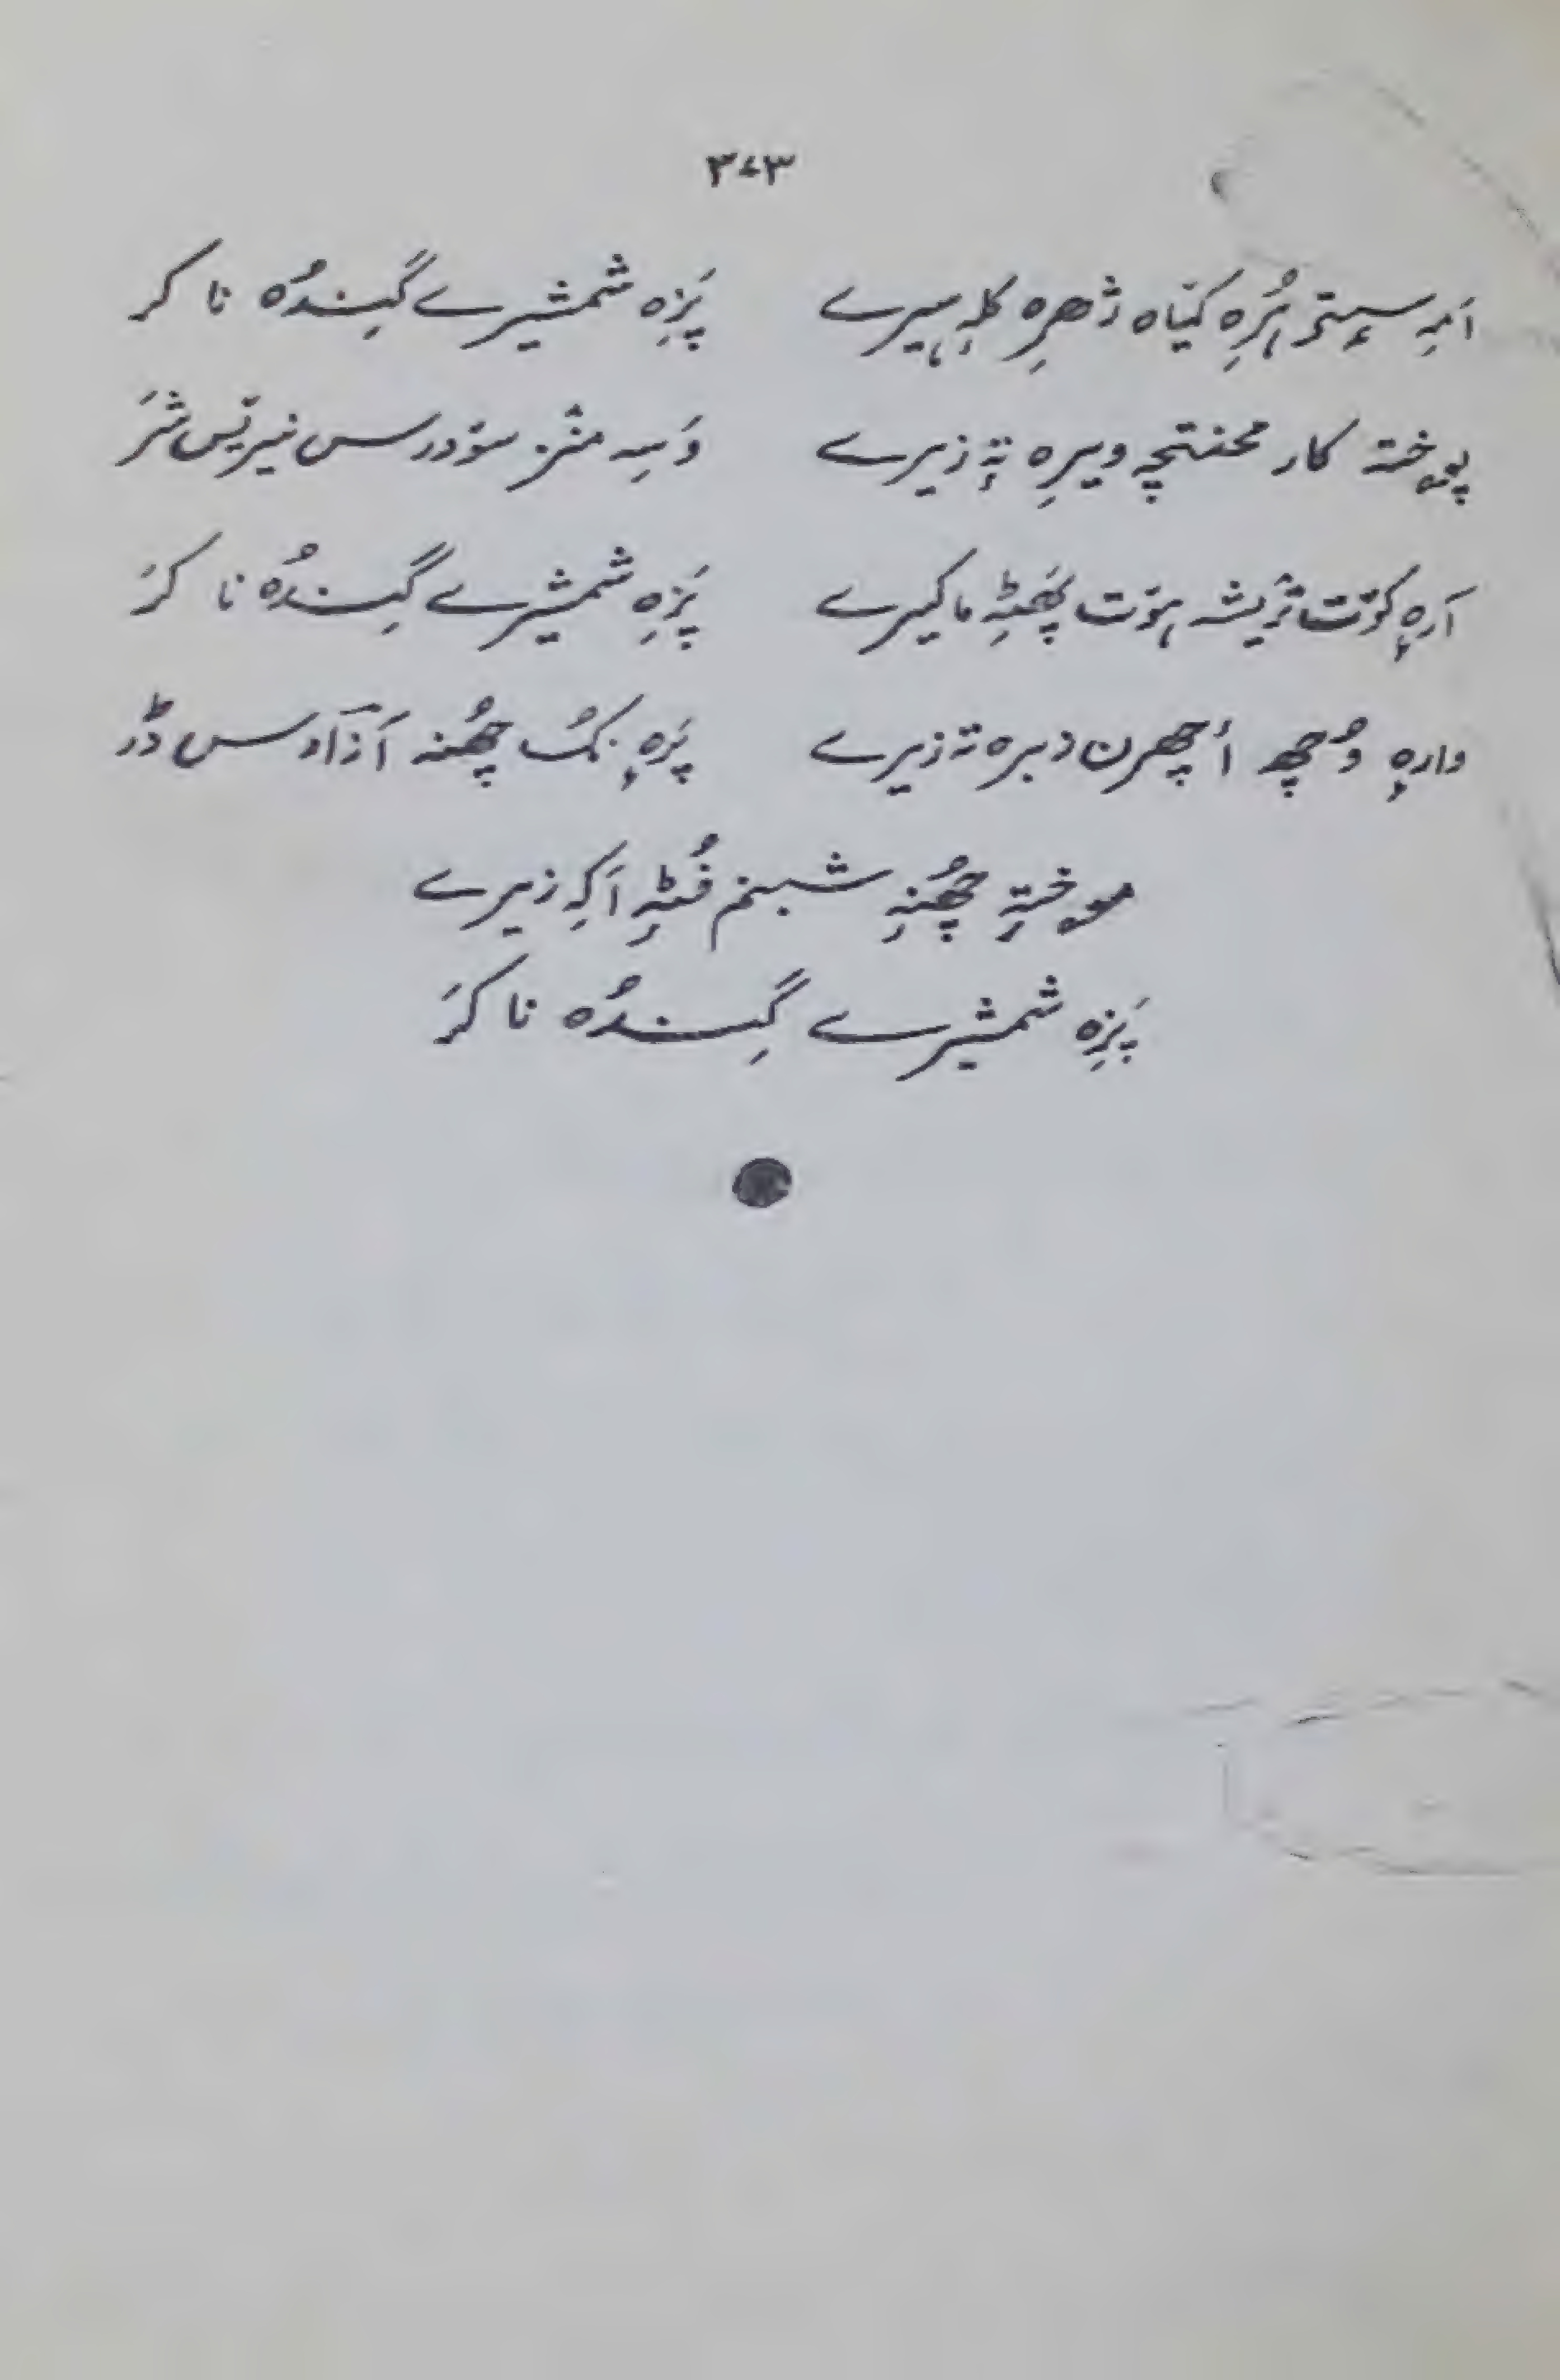 ۳۷۳
اَمہِ سٕتۍ ہُرِہ کیٚاہ ژھرِہ کلہٕ ہیرے پَزِہ شمشیرے گِندُہ نا کر
پوختہ کار محنتچہ ویرِہ تہٕ زیرے وَسہِ منٛز سوٚدرس نیریٚس شَر
اَرہٕ کوٚت تریشہ ہوٚت پھَٹہِ ماکیرے پَزِہ شمشیرے گِندُہ نا کَر
وارہٕ وُچھ أچھرن زبرہ تہ زیرے پَرہٕ نُک چھُنہ آزادس ڈَر
موختہٕ چھُنہِ شبنم فُٹہِ اَکہِ زیرے
پَزِہ شمشیرے گِندُہ نا کَر